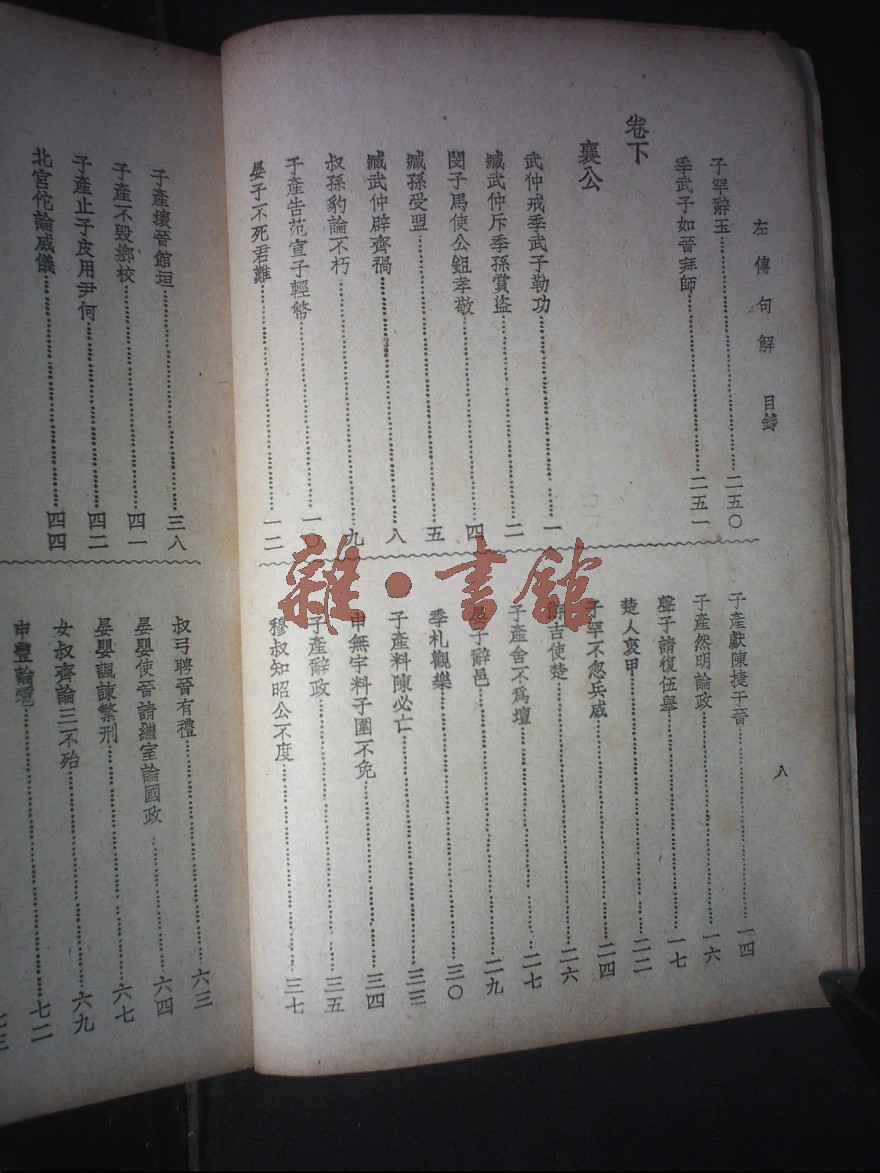 左傳句解 目錄
八
子罕辭玉……二五〇
季武子如晉拜師……二五一
卷下
襄公
武仲戒季武子勒功……一
臧武仲斥季孫賞盜……二
閔子馬使公鉏孝敬……四
臧孫受盟……五
臧武仲辟齊禍……八
叔孫豹論不朽……九
子產告范宣子輕幣……一〇
晏子不死君難……一二
子產獻陳捷于晉……一四
子產然明論政……一六
聲子請復伍舉……一七
楚人衷甲……二二
子罕不忽兵威……二四
游吉使楚……二六
子產舍不爲壇……二七
晏子辭邑……二九
季札觀樂……三〇
子產料陳必亡……三三
申無宇料子圍不免……三四
子產辭政……三五
穆叔知昭公不度……三七
子產壞晉館垣……三八
子產不毀鄉校……四一
子產止子皮用尹何……四二
北宮佗論威儀……四四
叔弓聘晉有禮……六三
晏嬰使晉請繼室論國政……六四
晏嬰諷諫繁刑……六七
女叔齊論三不殆……六九
申豐論雹……七二
雜·書館